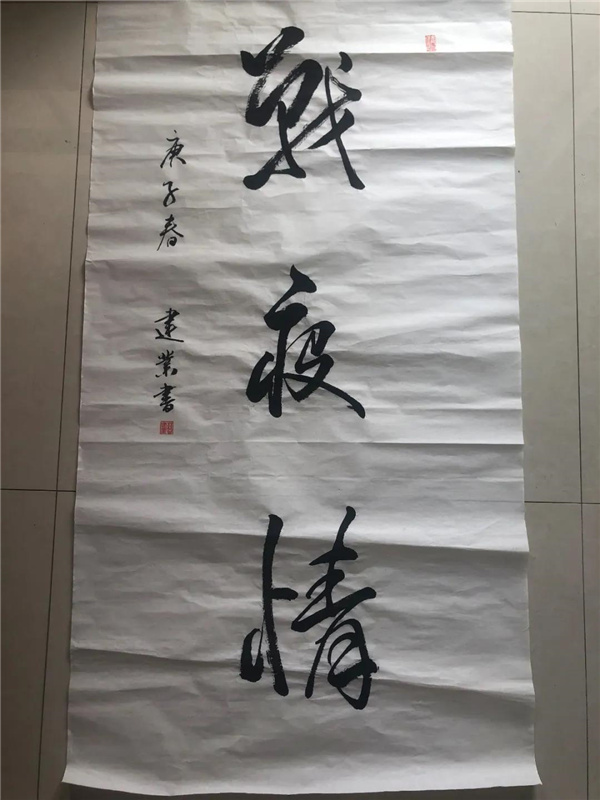 戰疫情
庚子春 建業書